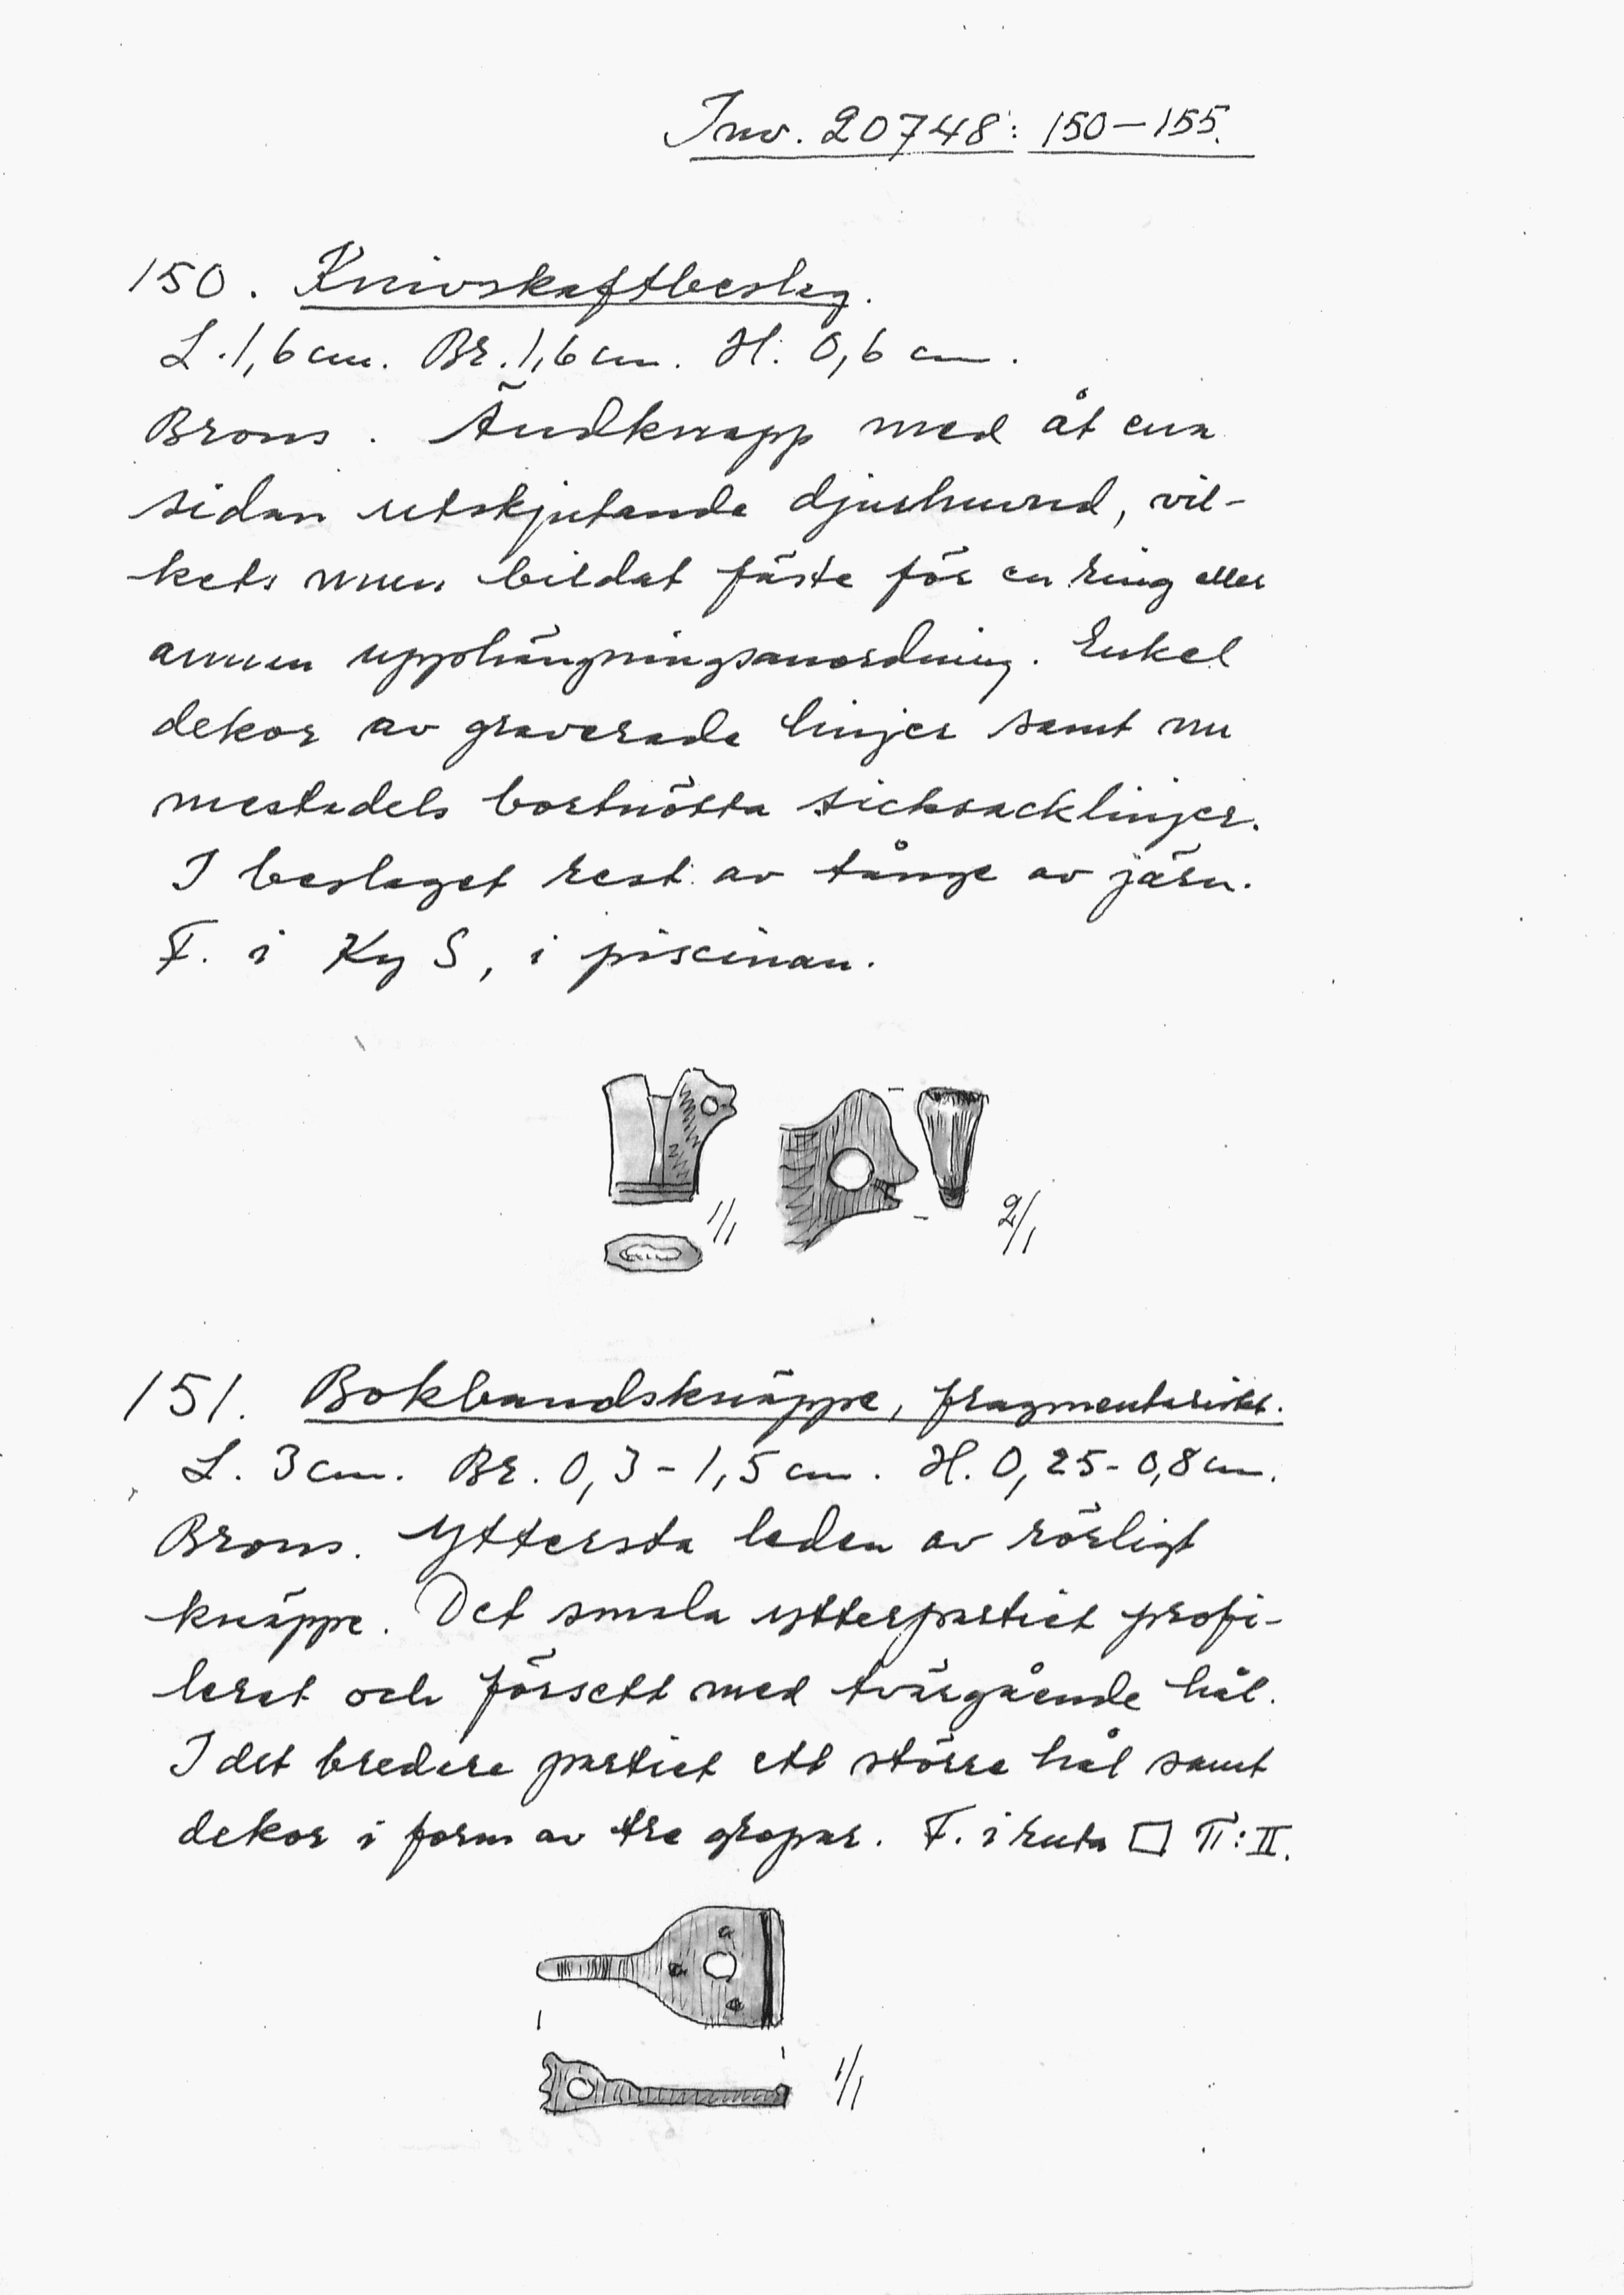 Inv. 20748: 150–155.
150. Knivskaftbeslag.
L. 1,6 cm. Br. 1,6 cm. H. 0,6 cm.
Brons. Ändknapp med åt ena
sidan utskjutande djurhuvud, vil-
kets mun bildat fäste för en ring eller
annan upphängningsanordning. Enkel
dekor av graverade linjer samt nu
mestadels bortnötta sicksacklinjer.
I beslaget rest av tånge av järn.
F. i Ky S, i piscinan.
1/1
2/1
151. Bokbandsknäppe, fragmentariskt.
L. 3 cm. Br. 0,3 - 1,5 cm. H. 0,25 - 0,8 cm.
Brons. Yttersta leden av rörligt
knäppe. Det smala ytterpartiet profi-
lerat och försett med tvärgående hål.
I det bredare partiet ett större hål samt
dekor i form av tre gropar. F. i ruta □ π:II.
1/1